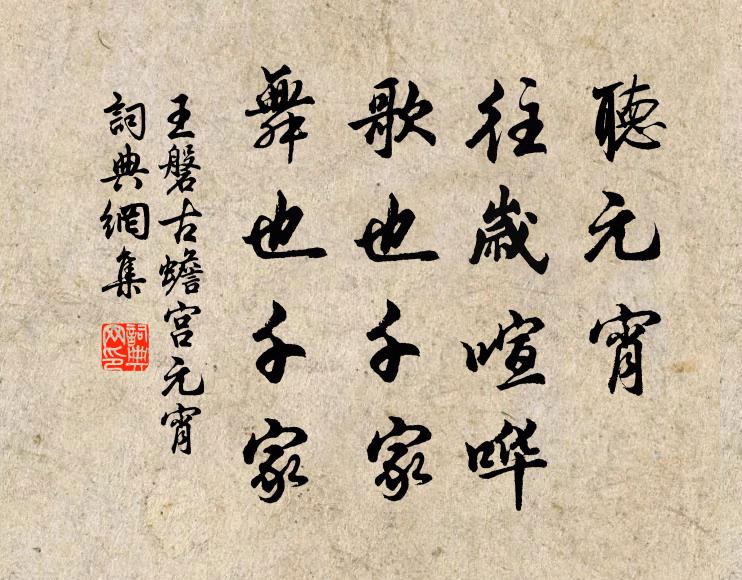 聽元宵
往歲喧哗
歌也千家
舞也千家
王磐古蟾宫元宵
詞典網集
詞典網印